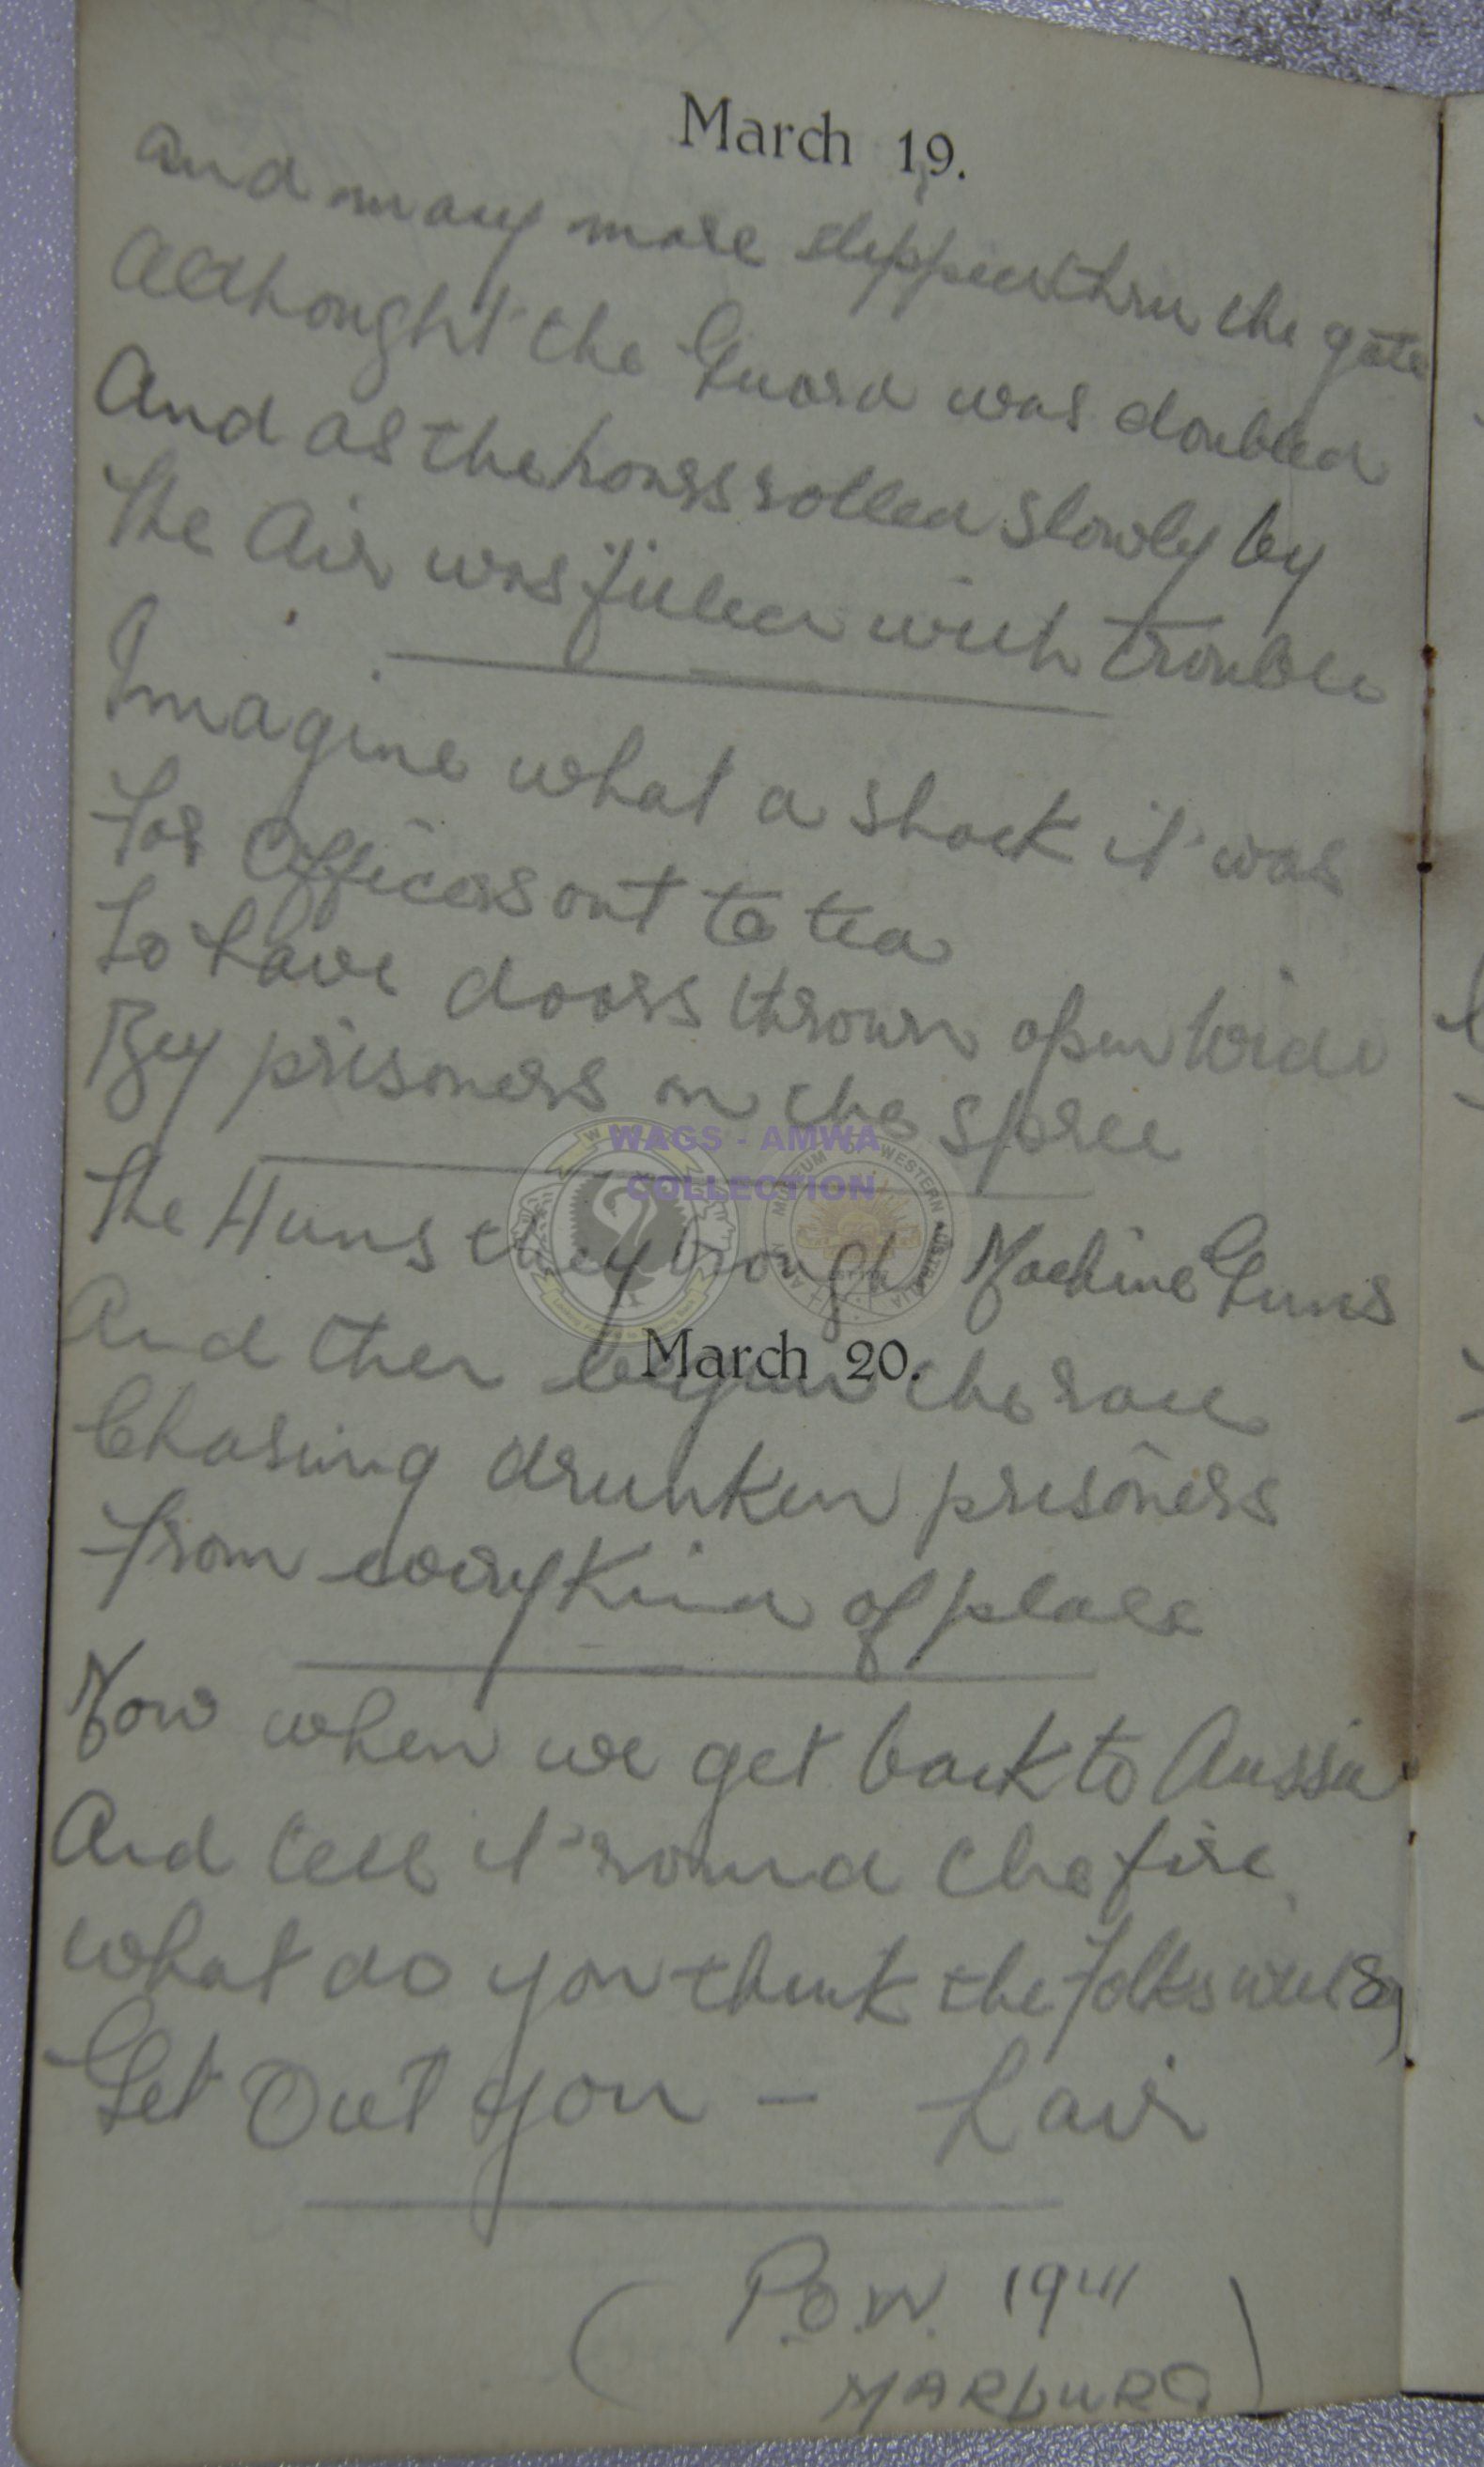 March 19.
and many more slipped thru the gate
Althought the Guard was doubled
And as the hours rolled slowly by
The Air was filled with trouble
Imagine what a shock it was
For Officers out to tea
To have doors thrown open wide
By prisoners on the spree
WAGS - AMWA
COLLECTION
The Huns they brought Machine Guns
March 20.
And then began the race
Chasing drunken prisoners
From every kind of place
Now when we get back to Aussie
And tell it round the fire
What do you think the folks will say
Get Out you - Lair
(P.O.W. 1941
MARBURG)